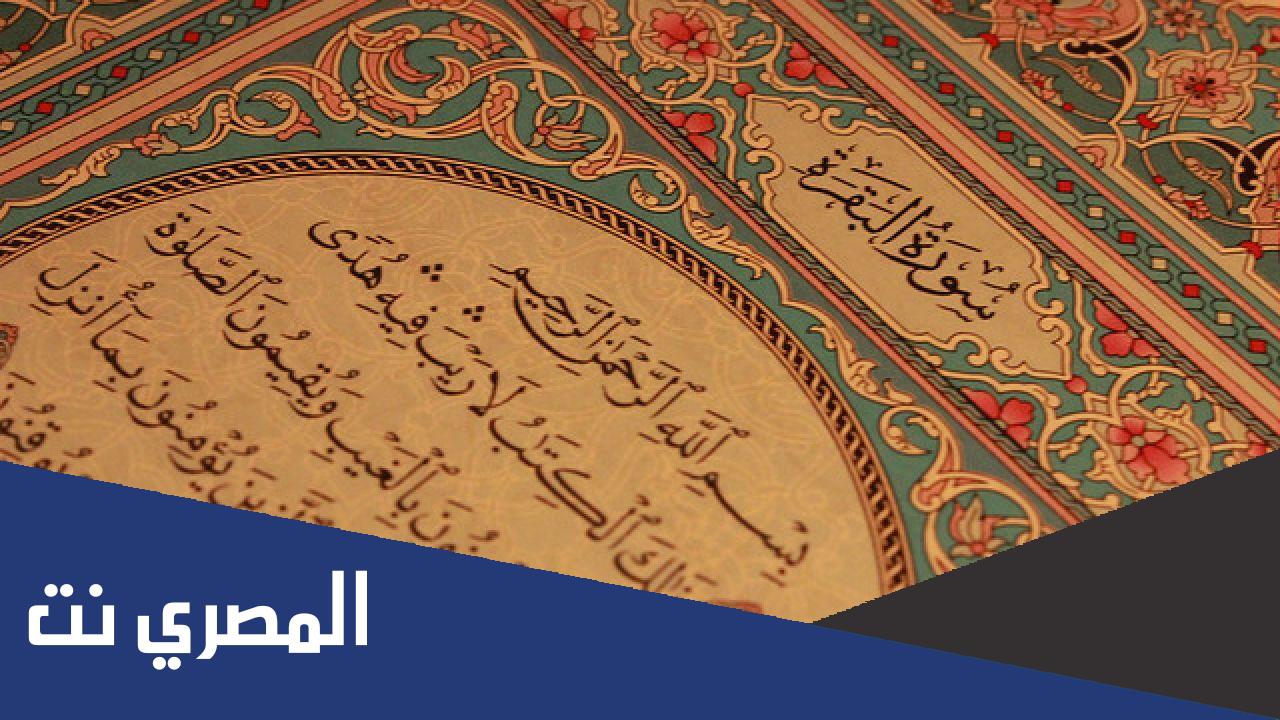 سُورَةُ الْبَقَرَةِ
بِسْمِ ٱللَّهِ ٱلرَّحْمَٰنِ ٱلرَّحِيمِ
ذَٰلِكَ ٱلْكِتَٰبُ لَا رَيْبَ ۛ فِيهِ ۛ هُدًى
بِٱلْغَيْبِ وَيُقِيمُونَ ٱلصَّلَوٰةَ
يُؤْمِنُونَ بِمَآ أُنزِلَ
المصري نت